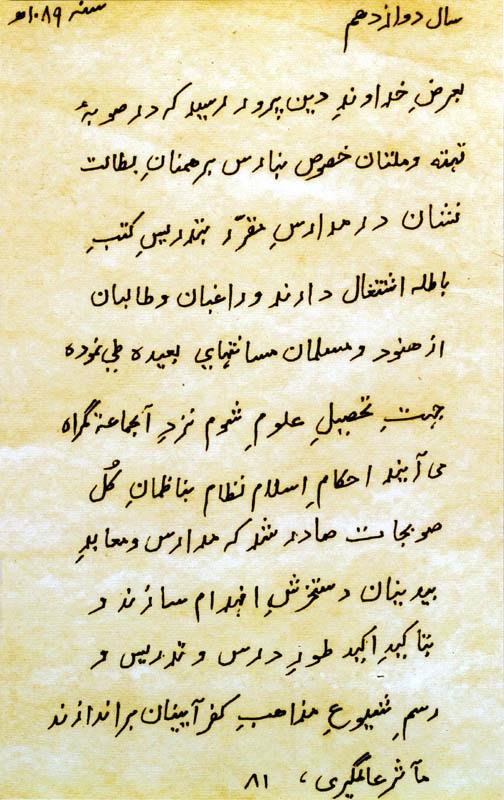 سال دوازدهم سنه ۱۰۸۹ھ
بعرضِ خداوندِ دین پرور رسید که در صوبهٔ
تهته و ملتان خصوص بنارس برهمنانِ بطالت
نشان در مدارسِ مقرّر بتدریسِ کتبِ
باطله اشتغال دارند و راغبان و طالبان
از هنود و مسلمان مسافتهایِ بعیده طی نموده
جهتِ تحصیلِ علومِ شوم نزدِ آنجماعهٔ گمراه
می آیند احکامِ اسلام نظام بناظمانِ کُل
صوبجات صادر شد که مدارس و معابدِ
بیدینان دستخوشِ انهدام سازند و
بتاکیدِ اکید طورِ درس و تدریس و
رسمِ شیوعِ مذاهبِ کفر آیینان براندازند
مآثر عالمگیری ، ۸۱